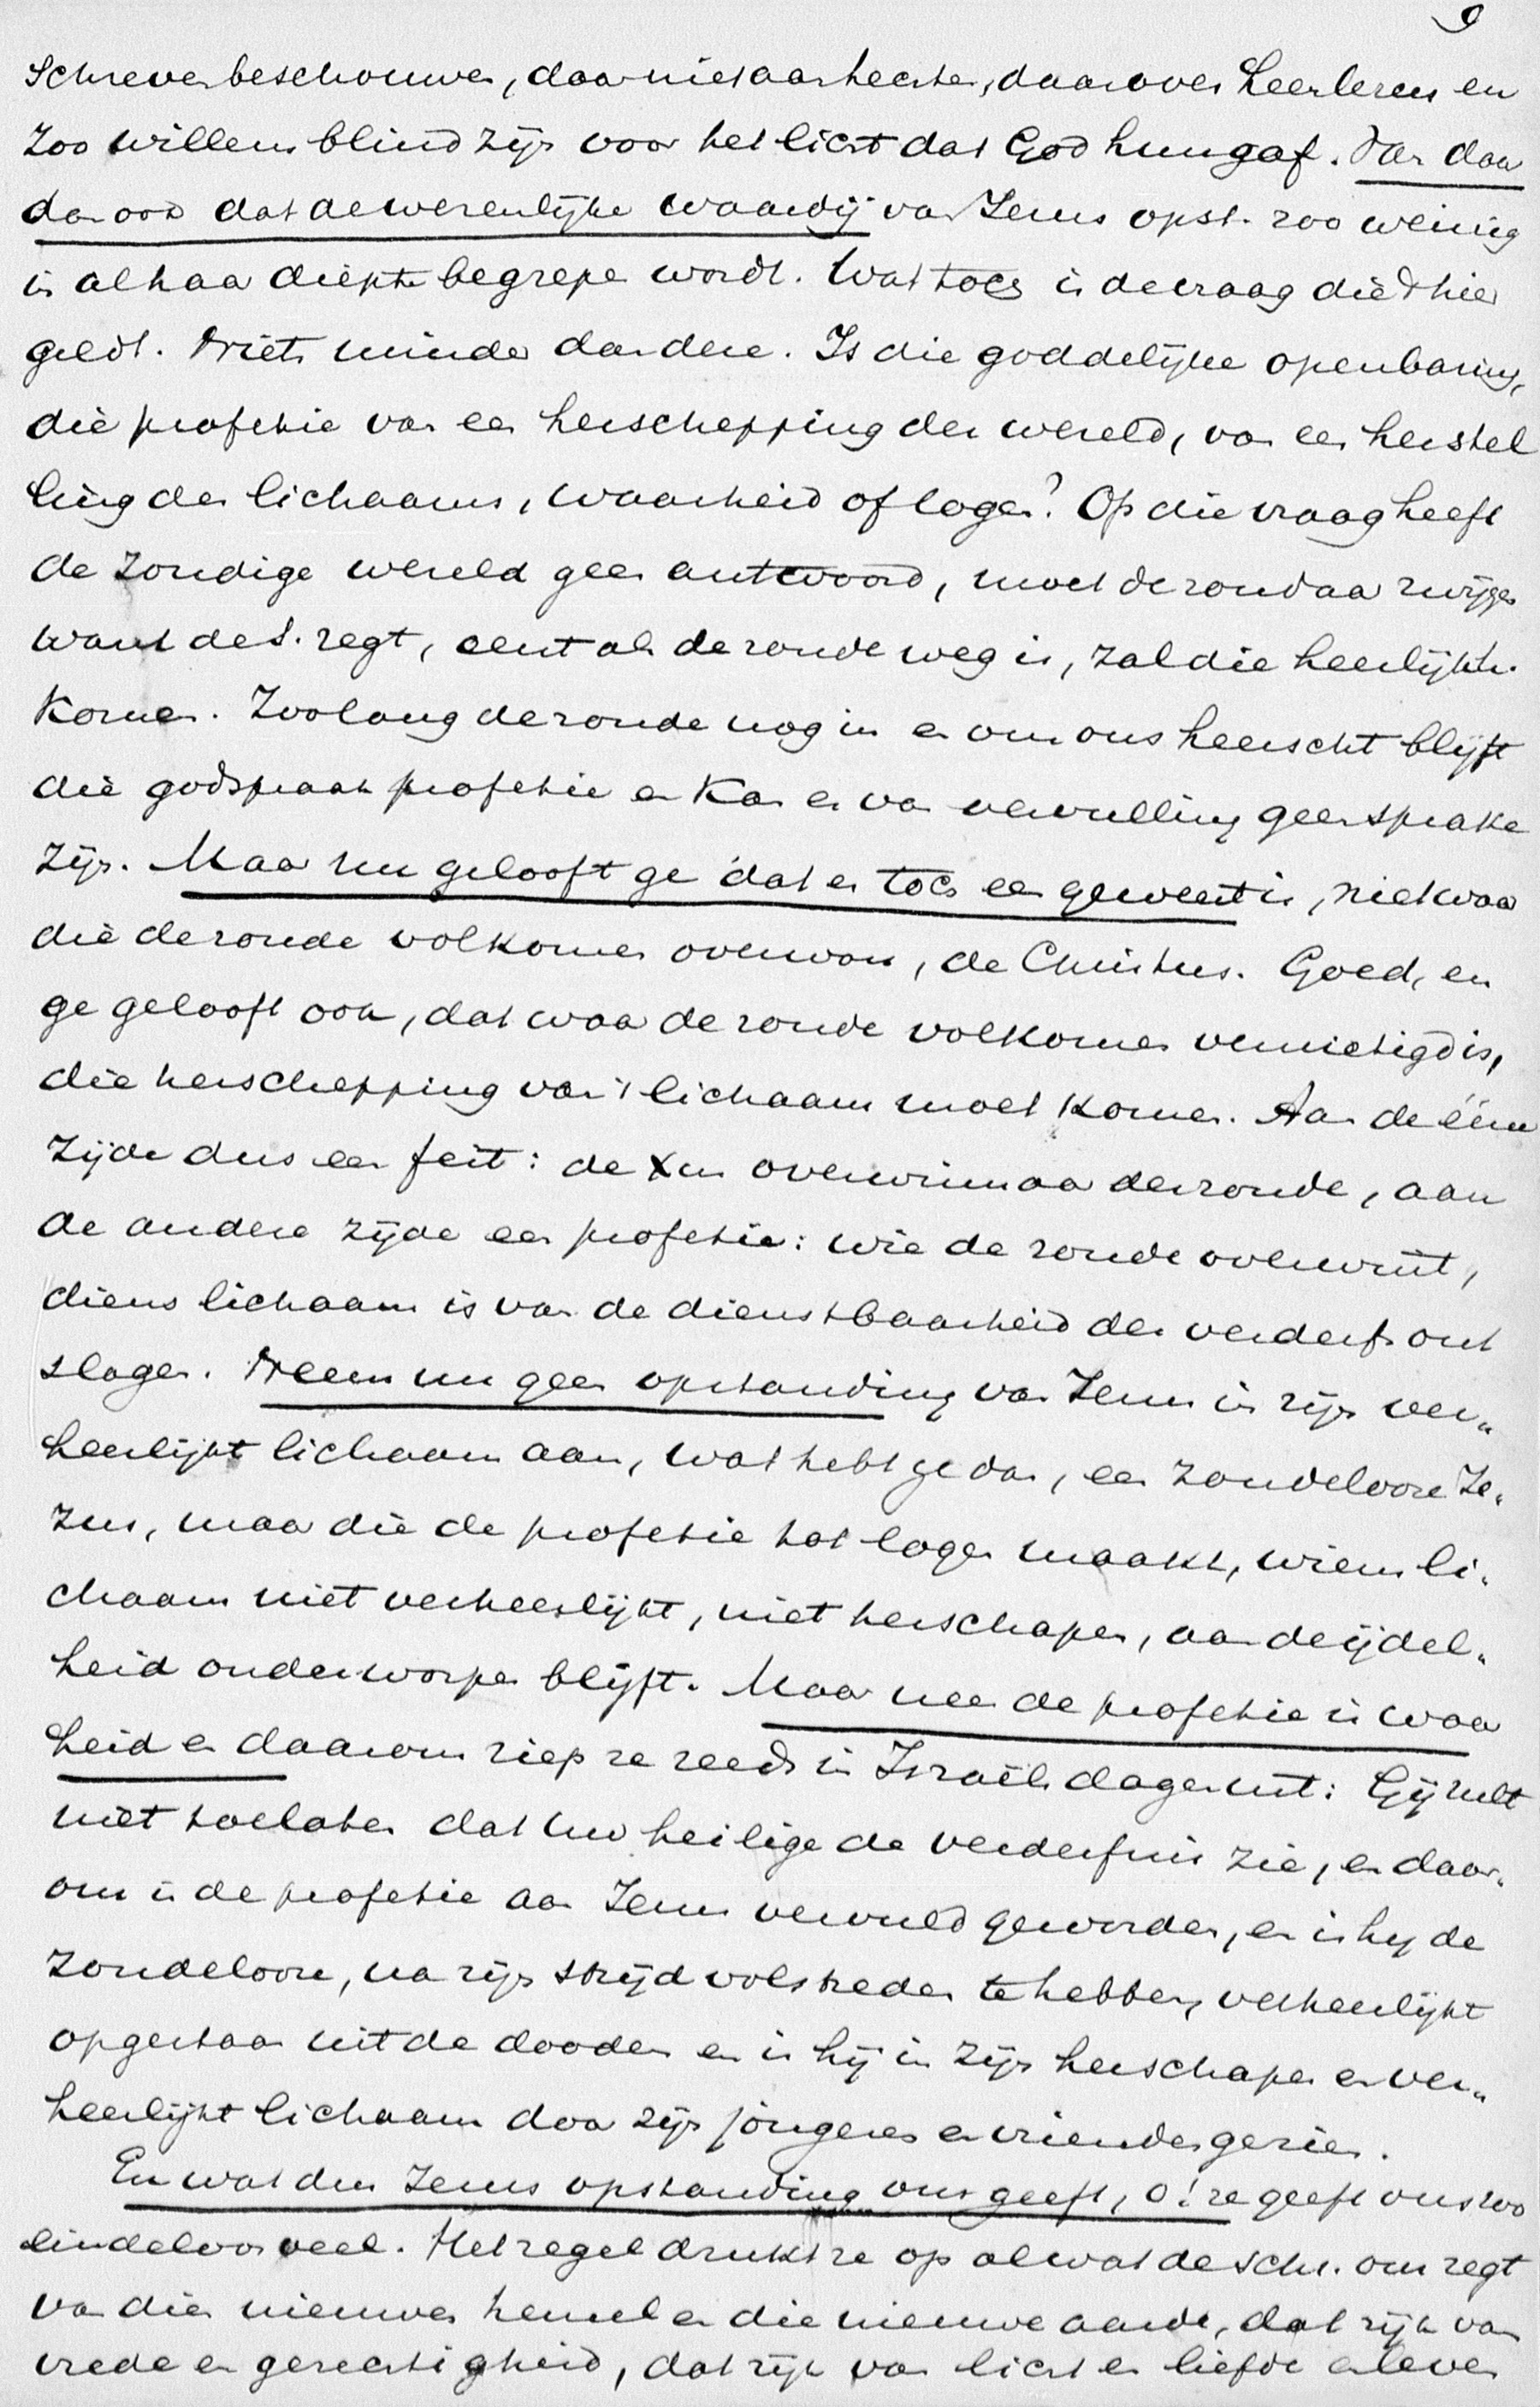 9
Schreven beschouwen, daar niet aan hechten, daarover heenlezen en
Zoo willens blind zijn voor het licht dat God hun gaf. Van daar
dan ook dat de wezenlijke waardij van Jezus opst. zoo weinig
in al haar diepte begrepen wordt. Wat toch is de vraag die 't hier
geldt. Niets minder dan deze. Is die goddelijke openbaring,
die profetie van een herschepping der wereld, van een herstel
ling des lichaams, waarheid of logen? Op die vraag heeft
de zondige wereld geen antwoord, moet de zondaar zwijgen
want de S. zegt, eerst als de zonde weg is, zal die heerlijkh.
Komen. Zoolang de zonde nog in en om ons heerscht blijft
die godspraak profetie en Kan er van vervulling geen sprake
zijn. Maar nu gelooft ge dat er toch een geweest is, niet waar
die de zonde volkomen overwon, de Christus. Goed, en
ge gelooft ook, dat waar de zonde volkomen vernietigd is,
die herschepping van 't lichaam moet Komen. Aan de ééne
Zijde dus een feit: de Xus overwinnaar der zonde, aan
de andere zijde een profetie: wie de zonde overwint,
diens lichaam is van de dienstbaarheid des verderfs ont
slagen. Neem nu geen opstanding van Jezus in zijn ver„
heerlijkt lichaam aan, wat hebt ge dan, een zondeloze Je„
zus, maar die de profetie tot logen maakt, wiens li„
chaam niet verheerlijkt, niet herschapen, aan de ijdel„
heid onderworpen blijft. Maar nee de profetie is waar
heid en daarom riep ze reeds in Israëls dagen uit: Gij zult
niet toelaten dat Uw heilige de verderfnis zie, en daar„
om is de profetie aan Jezus vervuld geworden, en is hij de
Zondelooze, na zijn strijd volstreden te hebben, verheerlijkt
opgestaan uit de dooden en is hij in zijn herschapen en ver„
heerlijkt lichaam door zijn jongeren en vrienden gezien.
En wat dus Jezus opstanding ons geeft, O! ze geeft ons zoo
eindeloos veel. Het zegel drukt ze op al wat de Schr. ons zegt
van dien nieuwen hemel en die nieuwe aarde, dat rijk van
vrede en gerechtigheid, dat rijk van licht en liefde en leven